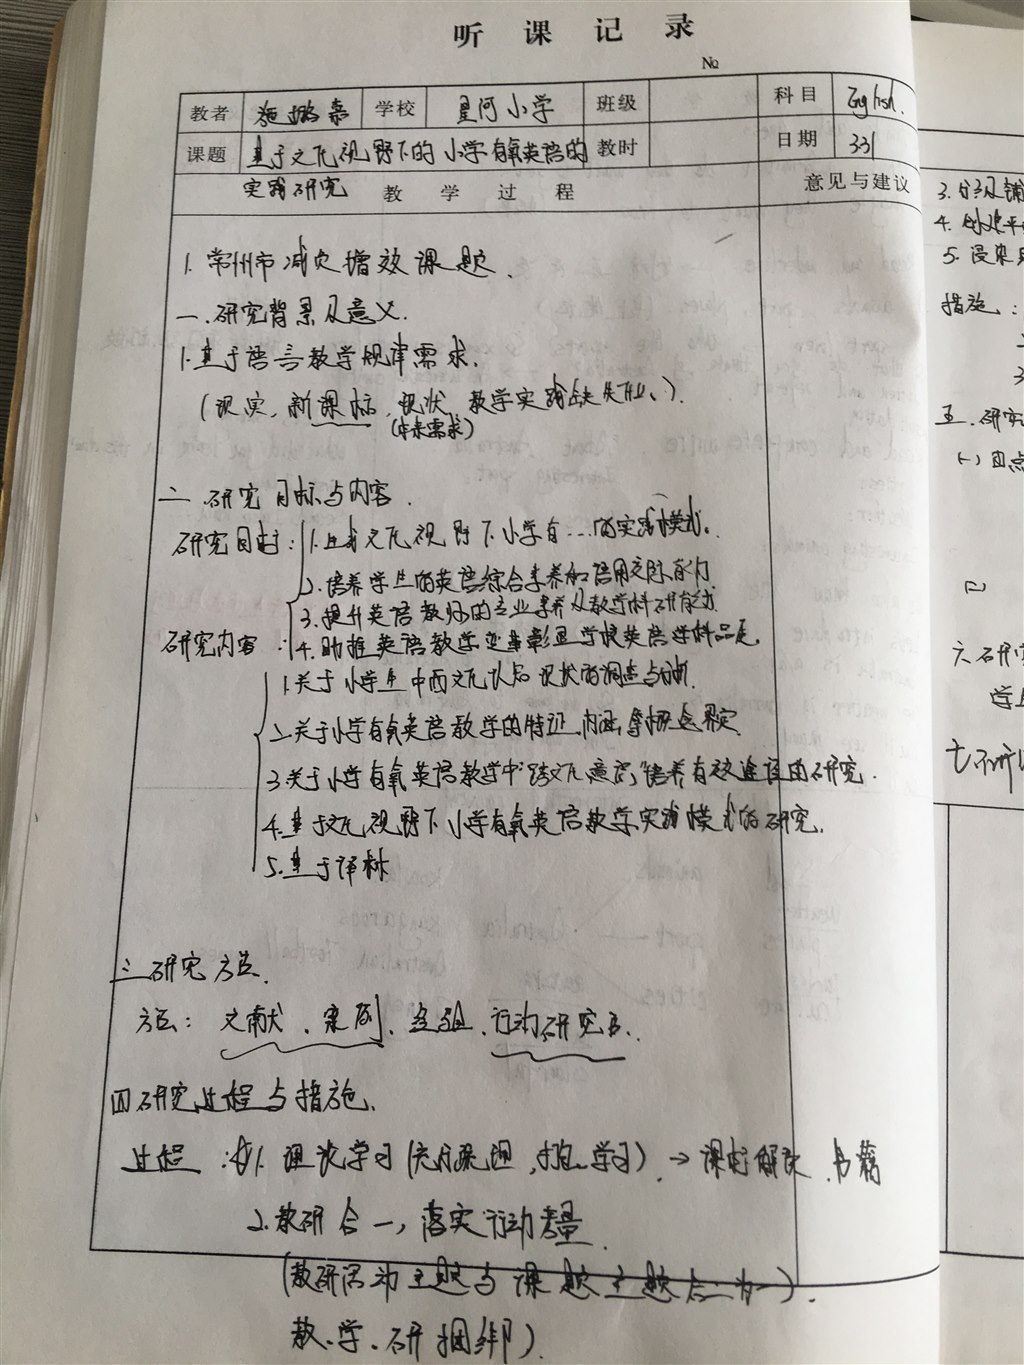 听课记录
№
教者 施璐嘉 学校 星河小学 班级 科目 English.
课题 基于文化视野下的小学有氧英语的 教时 日期 3.31
实践研究 教学过程 意见与建议
1. 常州市减负增效课题.
一.研究背景及意义.
1.基于语言教学规律需求.
(现实,新课标,现状,教学实践缺失
(未来需求)
二.研究目标与内容.
研究目标: 1. 文化视野下小学有…的实践模式.
2.培养学生的英语综合素养和语用交际能力.
3.提升英语教师的专业素养及教学科研能力.
研究内容: 4.助推英语教学变革彰显学校英语学科品质.
1.关于小学生中西文化认知现状的调查与分析.
2.关于小学有氧英语教学的特征、内涵等概念界定
3.关于小学有氧英语教学中"跨文化意识"培养有效途径的研究.
4.基于文化视野下小学有氧英语教学实践模式的研究.
5.基于译林
三研究方法.
方法: 文献、案例、经验、行动研究法.
四研究过程与措施.
过程: 1. 理论学习( 学习) → 课标解读.书籍
2.教研合一,落实行动考量.
(教研活动主题与课题主题合二为一).
教、学、研捆绑)
3.分级
4.创建平
5.浸染
措施:
3
五.研究
(一)四点
(二)
六研究
学
七.